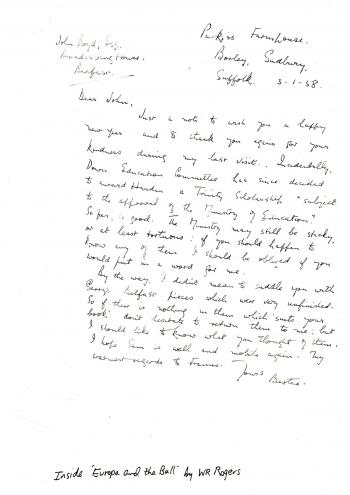 Parkiss Farmhouse.
Borley, Sudbury,
Suffolk. 3-1-58.
John Boyd, Esq.
Broadcasting House.
Belfast.
Dear John,
Just a note to wish you a happy
new year and to thank you again for your
kindness during my last visit. Incidentally,
Down Education Committee has since decided
to award Harden a Trinity Scholarship "subject
to the approval of the Ministry of Education."
So far, so good. The Ministry may still be sticky,
or at least tortuous: if you should happen to
know any of them I should be obliged if you
would put in a word for me.
By the way, I didn't mean to saddle you with
Gerry's Belfast pieces which were very unfinished.
So if there is nothing in them which suits your
book don't hesitate to return them to me: but
I should like to know what you thought of them.
I hope is well and mobile again. My
warmest regards to
Yours
Bertie.
Inside 'Europa and the Bull' by WR Rogers